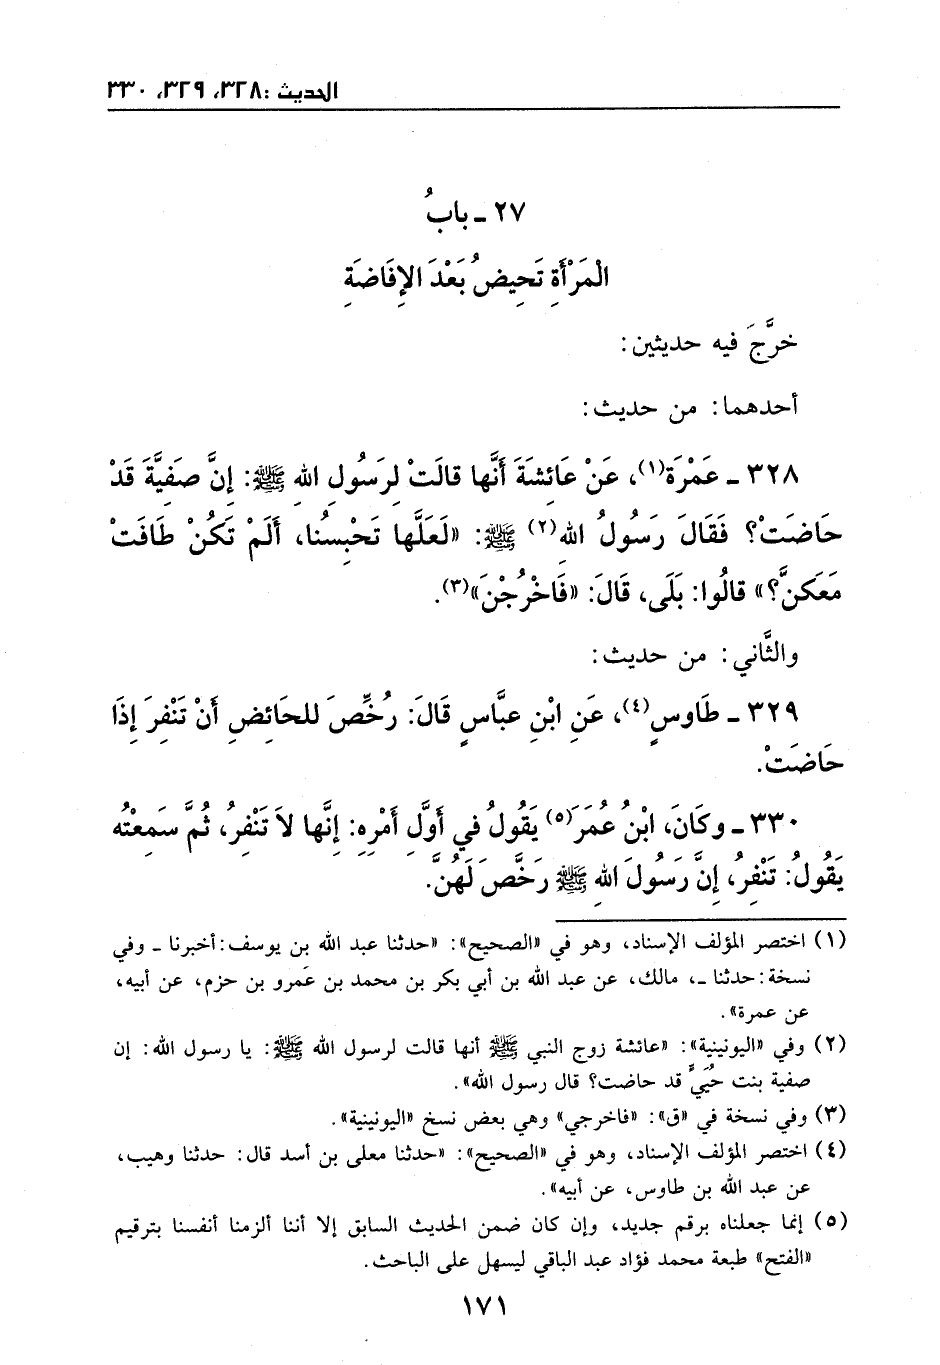 الحديث :٣٢٨، ٣٢٩، ٣٣٠
٢٧ ـ بابُ
الْمَرْأَةِ تَحِيضُ بَعْدَ الإِفَاضَةِ
خرَّجَ فيه حديثين:
أحدهما: من حديث:
٣٢٨ ـ عَمْرَة(١)، عَنْ عَائِشَةَ أَنَّها قالَتْ لِرَسُولِ اللهِ ﷺ: إِنَّ صَفِيَّةَ قَدْ
حَاضَتْ؟ فَقَالَ رَسُولُ اللهِ(٢) ﷺ: «لَعَلَّها تَحْبِسُنا، أَلَمْ تَكُنْ طَافَتْ
مَعَكنَّ؟» قالُوا: بَلَى، قَالَ: «فَاخْرُجْنَ»(٣).
والثَّاني: من حديث:
٣٢٩ ـ طَاوسٍ(٤)، عَنِ ابْنِ عبَّاسٍ قَالَ: رُخِّصَ للحَائِضِ أَنْ تَنْفِرَ إِذَا
حَاضَتْ.
٣٣٠ ـ وكَانَ، ابْنُ عُمَرَ(٥) يَقُولُ في أَوَّلِ أَمْرِهِ: إِنَّها لاَ تَنْفِرُ، ثُمَّ سَمِعْتُه
يَقُولُ: تَنْفِرُ، إِنَّ رَسُولَ اللهِ ﷺ رَخَّصَ لَهُنَّ.
(١) اختصر المؤلف الإسناد، وهو في «الصحيح»: «حدثنا عبد الله بن يوسف: أخبرنا ـ وفي
نسخة: حدثنا ـ، مالك، عن عبد الله بن أبي بكر بن محمد بن عَمرو بن حزم، عن أبيه،
عن عمرة».
(٢) وفي «اليونينية»: «عائشة زوج النبي ﷺ أنها قالت لرسول الله ﷺ: يا رسول الله: إن
صفية بنت حُيَيٍّ قد حاضت؟ قال رسول الله».
(٣) وفي نسخة في «ق»: «فاخرجي» وهي بعض نسخ «اليونينية».
(٤) اختصر المؤلف الإسناد، وهو في «الصحيح»: «حدثنا معلى بن أسد قال: حدثنا وهيب،
عن عبد الله بن طاوس، عن أبيه».
(٥) إنما جعلناه برقم جديد، وإن كان ضمن الحديث السابق إلا أننا ألزمنا أنفسنا بترقيم
«الفتح» طبعة محمد فؤاد عبد الباقي ليسهل على الباحث.
١٧١